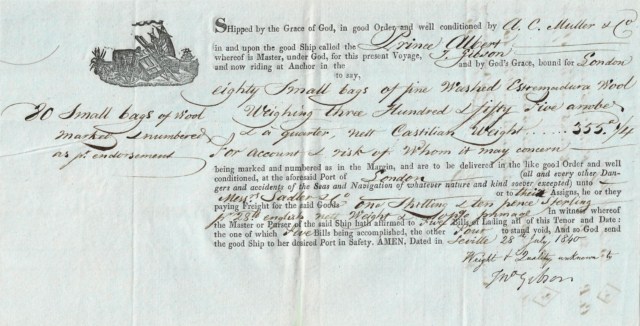 SHipped by the Grace of God, in good Order and well conditioned by A. C. Muller & Co
in and upon the good Ship called the Prince Albert
whereof is Master, under God, for this present Voyage, J. Gibson
and now riding at Anchor in the and by God's Grace, bound for London
to say,
eighty Small bags of fine Washed Estremadura Wool
Weighing three Hundred & fifty Five arrobs
& a quarter, nett Castilian Weight 355. 1/4
For account & risk of Whom it may concern
80 Small bags of Wool
marked & numbered
as pr. endorsement
being marked and numbered as in the Margin, and are to be delivered in the like good Order and well
conditioned, at the aforesaid Port of London (all and every other Dan-
gers and accidents of the Seas and Navigation of whatever nature and kind soever excepted) unto
Messrs. Sadler & Co or their Assigns, he or they
paying Freight for the said Goods one Shilling & ten pence Sterling
pr 28 lb english nett Weight & In witness whereof
the Master or Purser of the said Ship hath affirmed to Five Bills of Lading all of this Tenor and Date:
the one of which Five Bills being accomplished, the other Four to stand void, And so God send
the good Ship to her desired Port in Safety. AMEN. Dated in Seville 28th July 1840
Weight & Quality unknown to
Jno Gibson